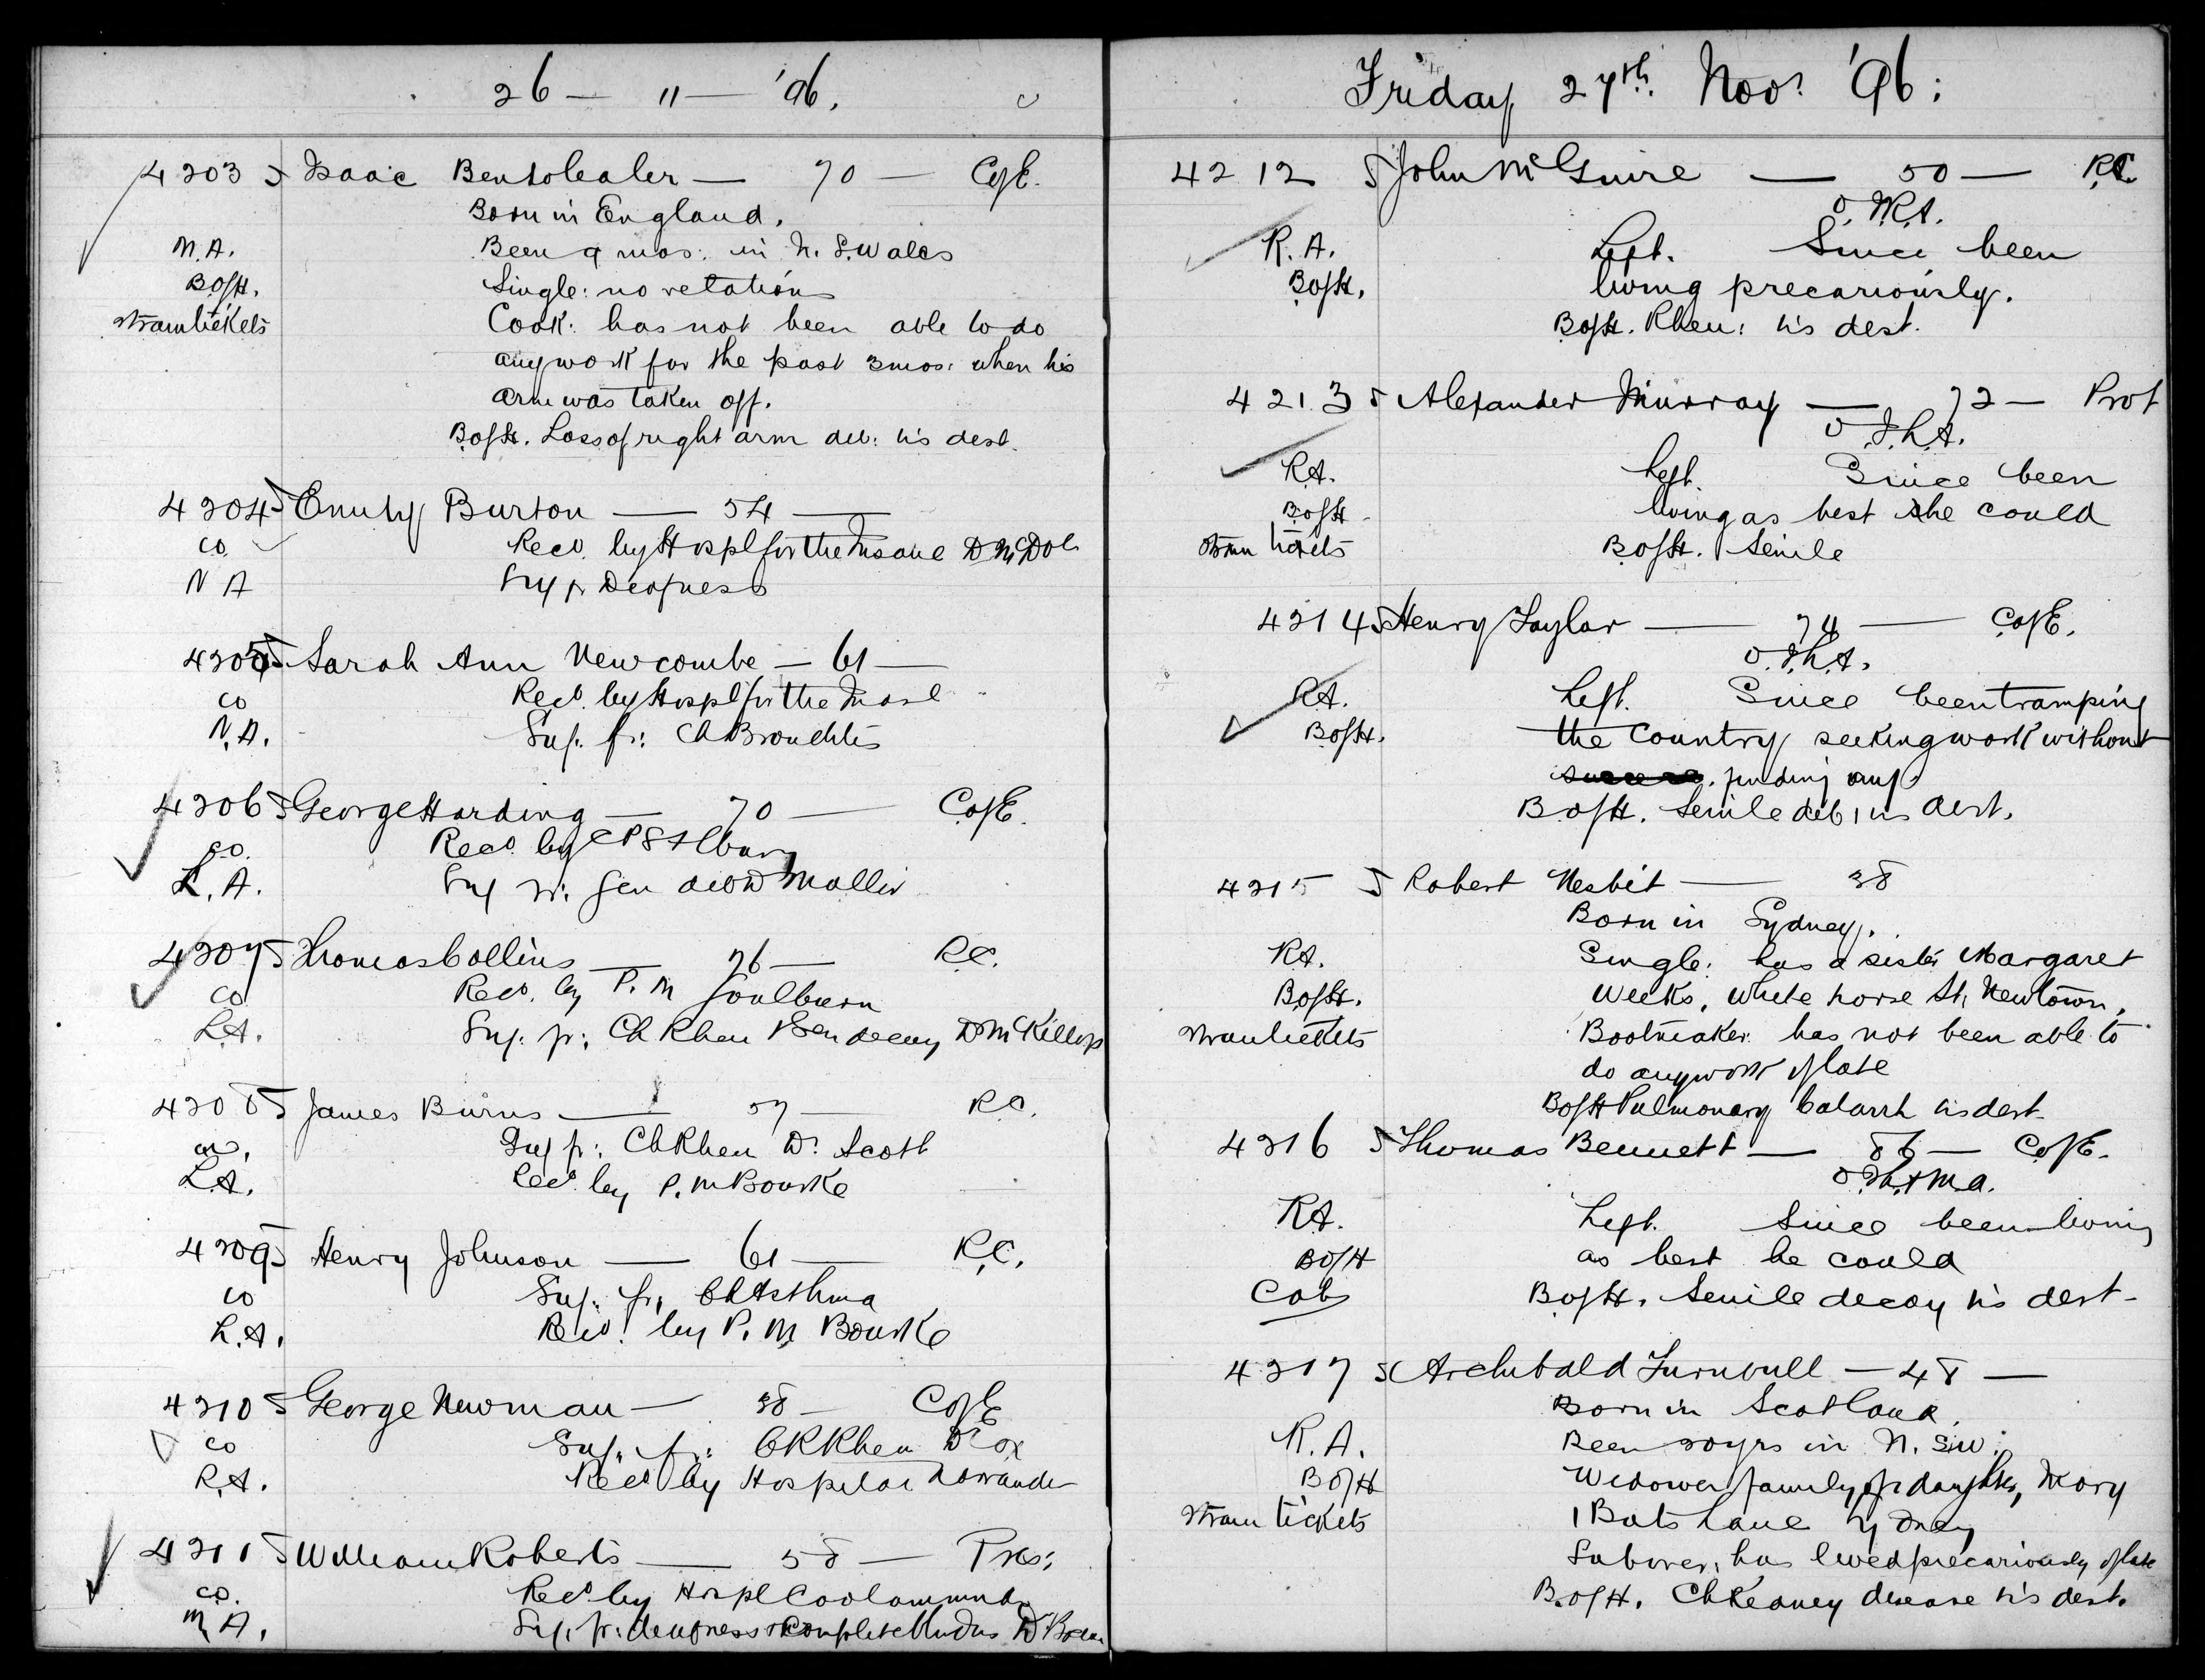 26 — 11 — '96.
4203 5 Isaac — 70 — CofE.
Born in England.
M.A. Been 9 mos: in N. S. Wales
BofH. Single: no relations
tram tickets Cook: has not been able to do
any work for the past 3 mos: when his
arm was taken off.
BofH. Loss of right arm deb: is dest.
4204 5 Emily Burton — 54 —
co. Recd. by Hospl for the Insane Dr McDol
N A Suf fr Deafness
4205 5 Sarah Ann Newcombe — 61 —
co Recd. by Hospl for the Insae
N.A. Suf. fr: Ch Bronchitis
4206 5 George Harding — 70 — CofE.
co. Recd by CPS
L.A. Suf fr: Gen Mollin
4207 5 Thomas Collins — 76 — R.C.
co Recd. by P. M Goulburn
L.A. Suf. fr: Ch Rheu Sen decay Dr McKillop
4208 5 James Burns — 57 — R.C.
co. Suf fr: Ch Rheu Dr Scott
L.A. Recd by P. M Bourke
4209 5 Henry Johnson — 61 — R.C.
co Suf. fr, Ch Asthma
L.A. Recd. by P. M Bourke
4210 5 George Newman — 38 — CofE
co Suf. fr: Ch Rheu Dr Cox
R.A. Recd by Hospital
4211 5 William Roberts — 58 — Pres:
co. Recd by Hospl Cootamundra
M A. Suf. fr: deafness complete Dr
Friday 27th. Novr '96:
4212 5 John McGuire — 50 — RC
O. R.A.
R.A. Left. Since been
BofH. living precariously.
BofH. Rheu: is dest.
4213 5 Alexander Murray — 72 — Prot
O L.A.
R.A. Left. Since been
BofH living as best he could
tram tickets BofH. Senile
4214 5 Henry Taylor — 74 — CofE.
O. L.A.
R.A. Left. Since been tramping
BofH. the Country seeking work without
finding any
BofH. Senile deb: is dest.
4215 5 Robert Nesbit — 38
Born in Sydney.
R.A. Single: has a sister Margaret
BofH. Weeks, White horse St, Newtown.
tram tickets Bootmaker: has not been able to
do any work of late
BofH Pulmonary Catarrh is dest.
4216 5 Thomas Bennett — 86 — CofE.
O M.A.
R.A. Left. Since been living
BofH as best he could
Cab BofH. Senile decay is dest.
4217 5 Archibald Turnbull — 48 —
Born in Scotland.
R.A. Been 20 yrs in N. S. W:
BofH Widower family of daughter, Mary
tram tickets 1 Bats Lane Sydney
Laborer, has lived precariously of late
BofH. Ch Kedney disease is dest.